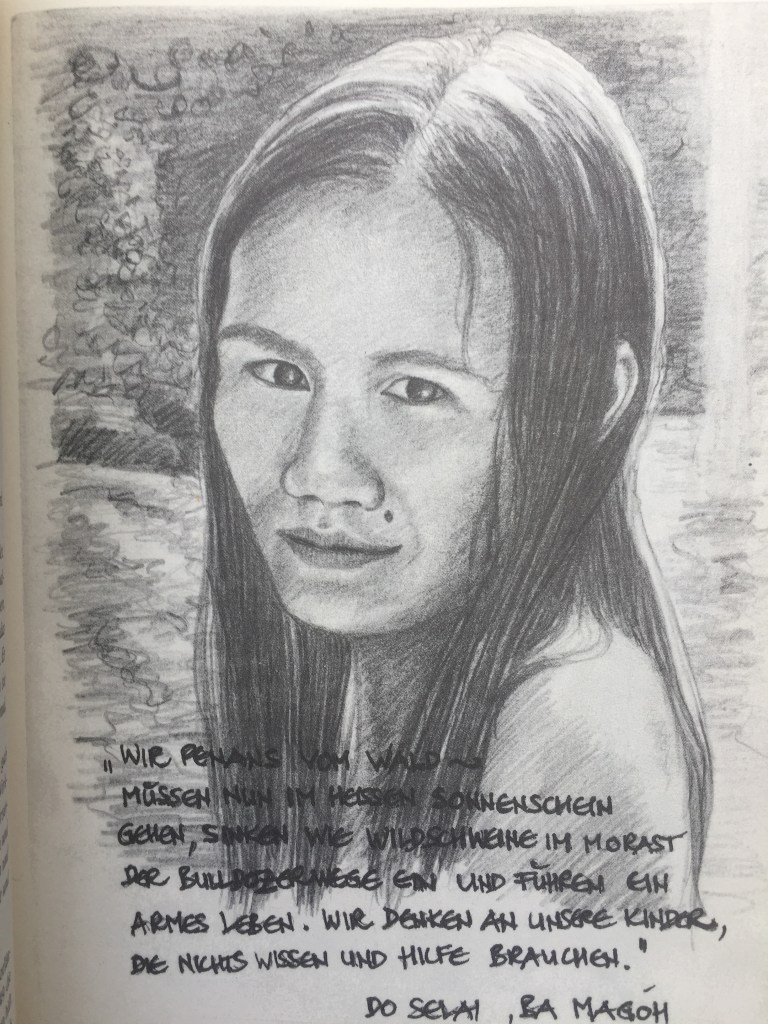 „WIR PENANS VOM WALD ~
MÜSSEN NUN IM HEISSEN SONNENSCHEIN
GEHEN, SINKEN WIE WILDSCHWEINE IM MORAST
DER BULLDOZERWEGE EIN UND FÜHREN EIN
ARMES LEBEN. WIR DENKEN AN UNSERE KINDER,
DIE NICHTS WISSEN UND HILFE BRAUCHEN."
DO SELAI , BA MAGÓH